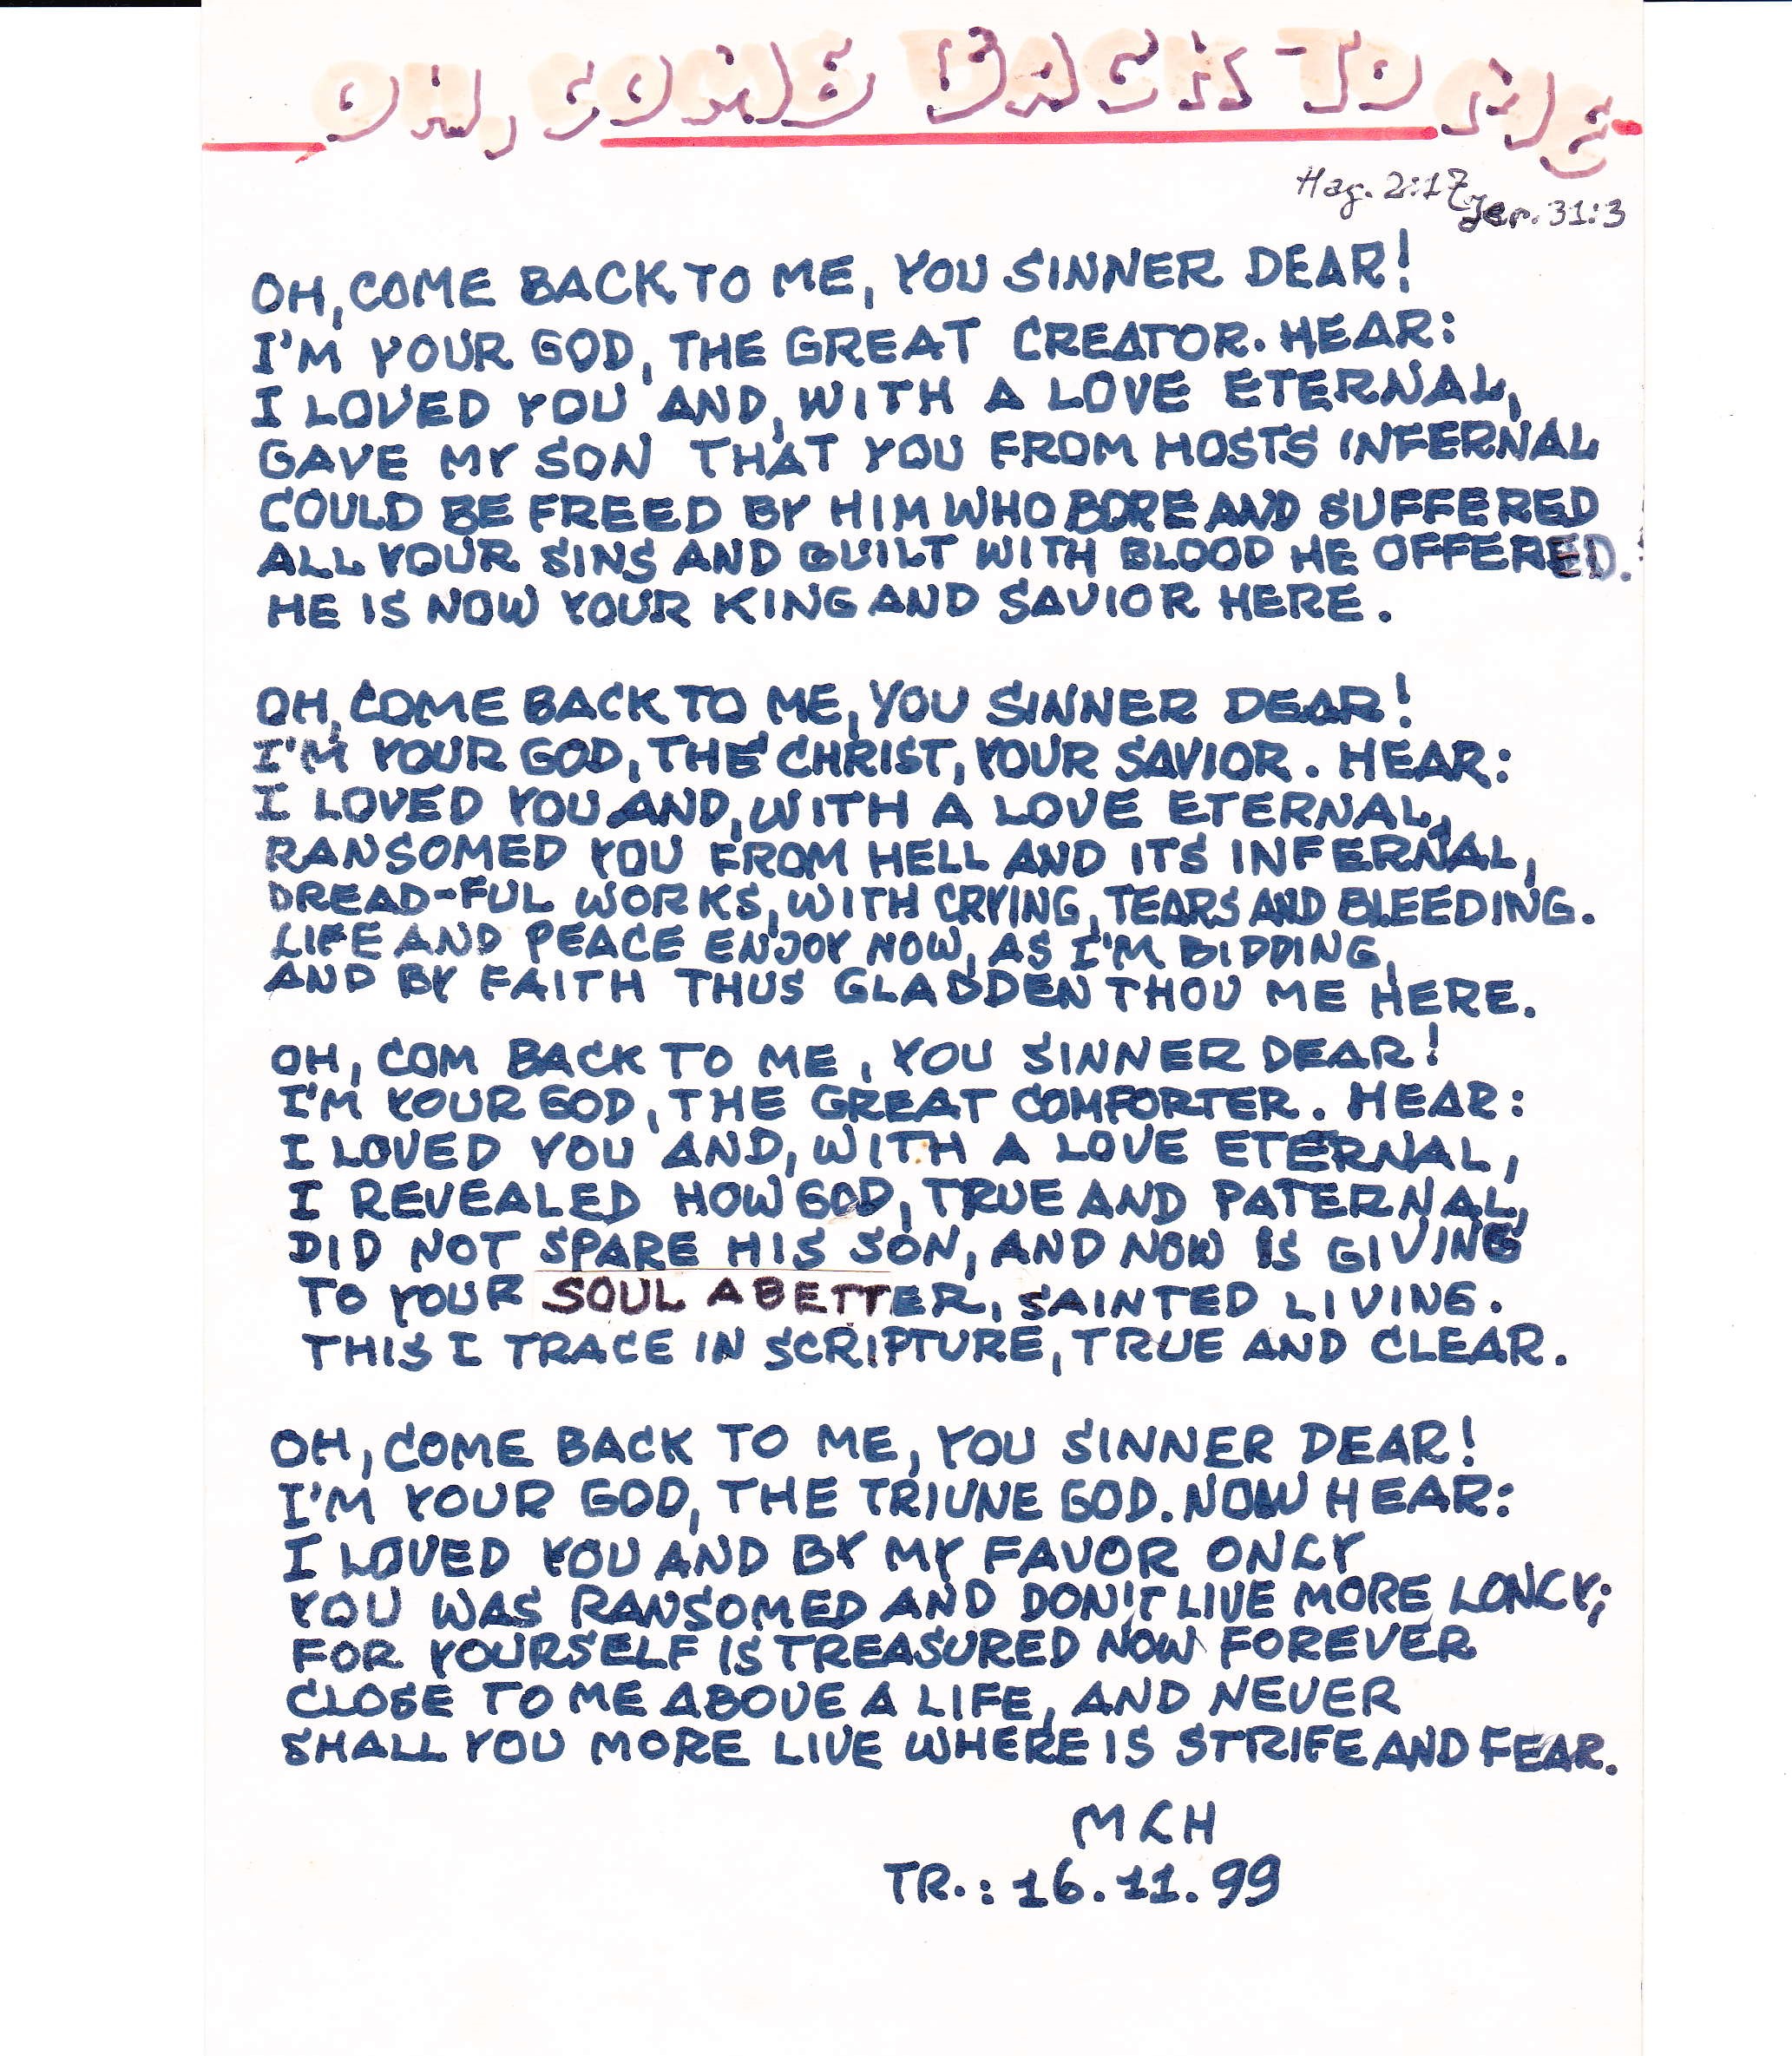 OH, COME BACK TO ME
Hag. 2:17 Jer. 31:3
OH, COME BACK TO ME, YOU SINNER DEAR!
I'M YOUR GOD, THE GREAT CREATOR. HEAR:
I LOVED YOU AND, WITH A LOVE ETERNAL,
GAVE MY SON THAT YOU FROM HOSTS INFERNAL
COULD BE FREED BY HIM WHO BORE AND SUFFERED
ALL YOUR SINS AND GUILT WITH BLOOD HE OFFERED.
HE IS NOW YOUR KING AND SAVIOR HERE.
OH, COME BACK TO ME, YOU SINNER DEAR!
I'M YOUR GOD, THE CHRIST, YOUR SAVIOR. HEAR:
I LOVED YOU AND, WITH A LOVE ETERNAL,
RANSOMED YOU FROM HELL AND ITS INFERNAL,
DREAD-FUL WORKS, WITH CRYING, TEARS AND BLEEDING.
LIFE AND PEACE ENJOY NOW, AS I'M BIDDING,
AND BY FAITH THUS GLADDEN THOU ME HERE.
OH, COM BACK TO ME, YOU SINNER DEAR!
I'M YOUR GOD, THE GREAT COMFORTER. HEAR:
I LOVED YOU AND, WITH A LOVE ETERNAL,
I REVEALED HOW GOD, TRUE AND PATERNAL,
DID NOT SPARE HIS SON, AND NOW IS GIVING
TO YOUR SOUL A BETTER, SAINTED LIVING.
THIS I TRACE IN SCRIPTURE, TRUE AND CLEAR.
OH, COME BACK TO ME, YOU SINNER DEAR!
I'M YOUR GOD, THE TRIUNE GOD. NOW HEAR:
I LOVED YOU AND BY MY FAVOR ONLY
YOU WAS RANSOMED AND DON'T LIVE MORE LONLY;
FOR YOURSELF IS TREASURED NOW FOREVER
CLOSE TO ME ABOVE A LIFE, AND NEVER
SHALL YOU MORE LIVE WHERE IS STRIFE AND FEAR.
MLH
TR.: 16.11.99